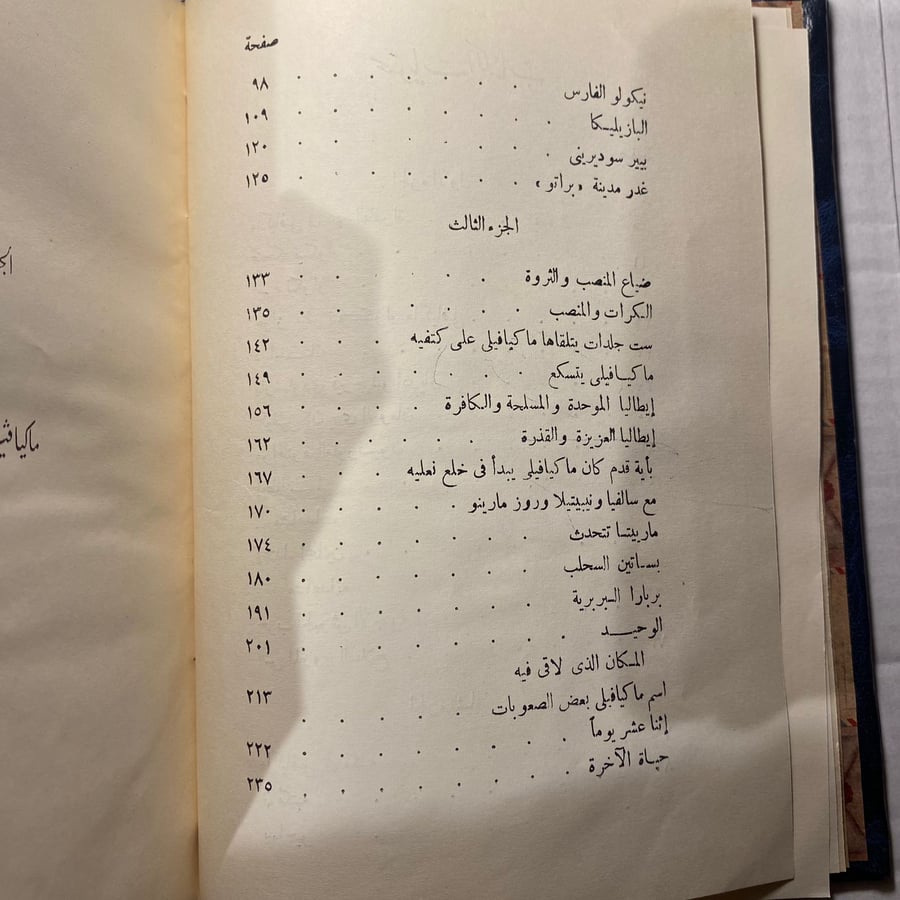 صفحة
نيكولو الفارس ٩٨
البازيليكا ١٠٩
بيير سوديرينى ١٢٠
غدر مدينة «براتو» ١٢٥
الجزء الثالث
ضياع المنصب والثروة ١٣٣
الكرات والمنصب ١٣٥
ست جلدات يتلقاها ماكيافيلى على كتفيه ١٤٢
ماكيافيلى يتسكع ١٤٩
إيطاليا الموحدة والمسلحة والكافرة ١٥٦
إيطاليا العزيزة والقذرة ١٦٢
بأية قدم كان ماكيافيلى يبدأ فى خلع نعليه ١٦٧
مع سالفيا ونيبيتيلا وروز مارينو ١٧٠
مارييتسا تتحدث ١٧٤
بساتين السحلب ١٨٠
بربارا البربرية ١٩١
الوحيد ٢٠١
المكان الذى لاقى فيه
اسم ماكيافيلى بعض الصعوبات ٢١٣
إثنا عشر يوماً ٢٢٢
حياة الآخرة ٢٣٥